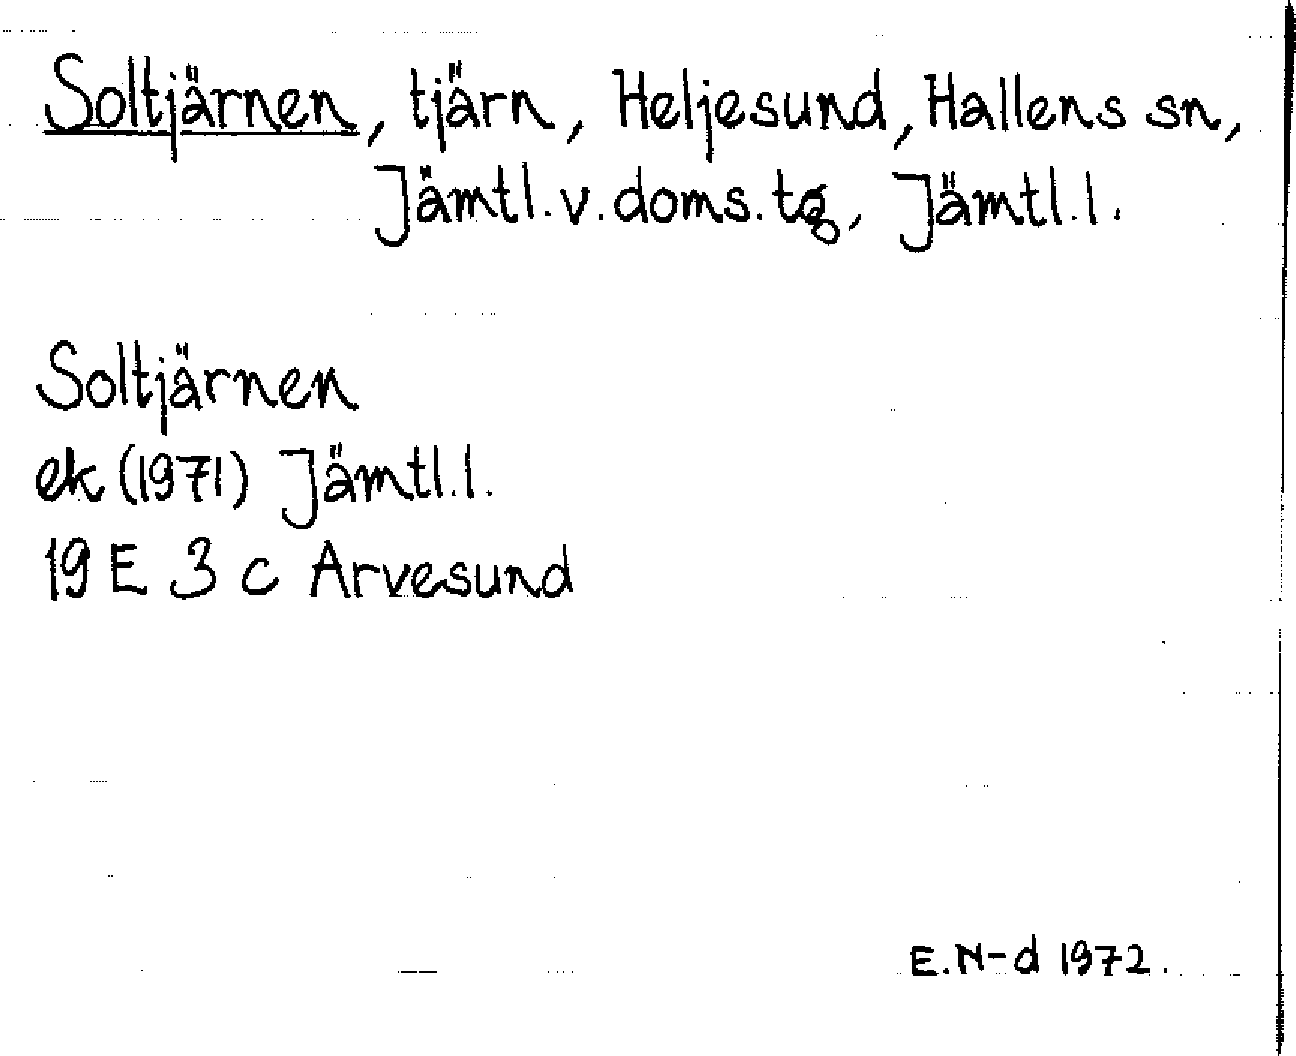 Soltjärnen, tjärn, Heljesund, Hallens sn,
Jämtl.v.doms.tg, Jämtl.l.
Soltjärnen
ek (1971) Jämtl.l.
19 E 3 c Arvesund
E.N-d 1972.